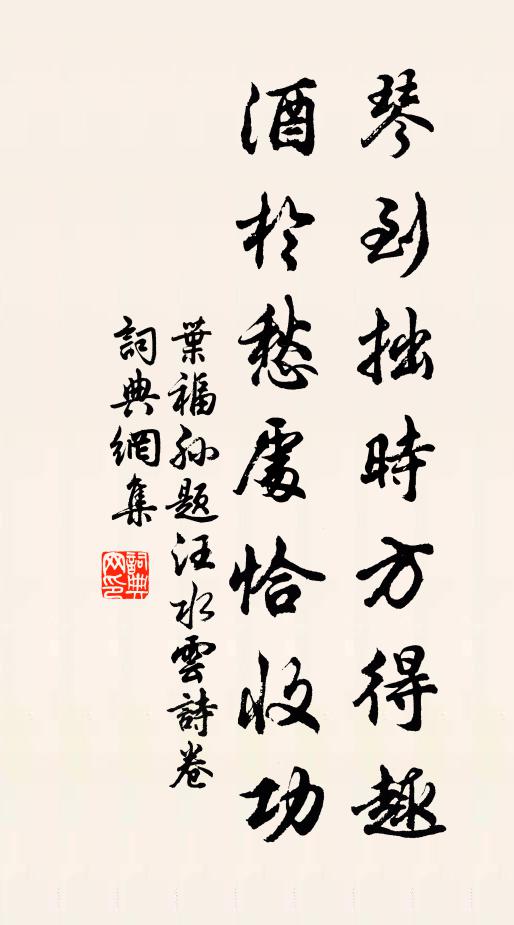 琴到拙時方得趣
酒於愁處恰收功
葉福孫題汪水雲詩卷
詞典網集
詞典網印